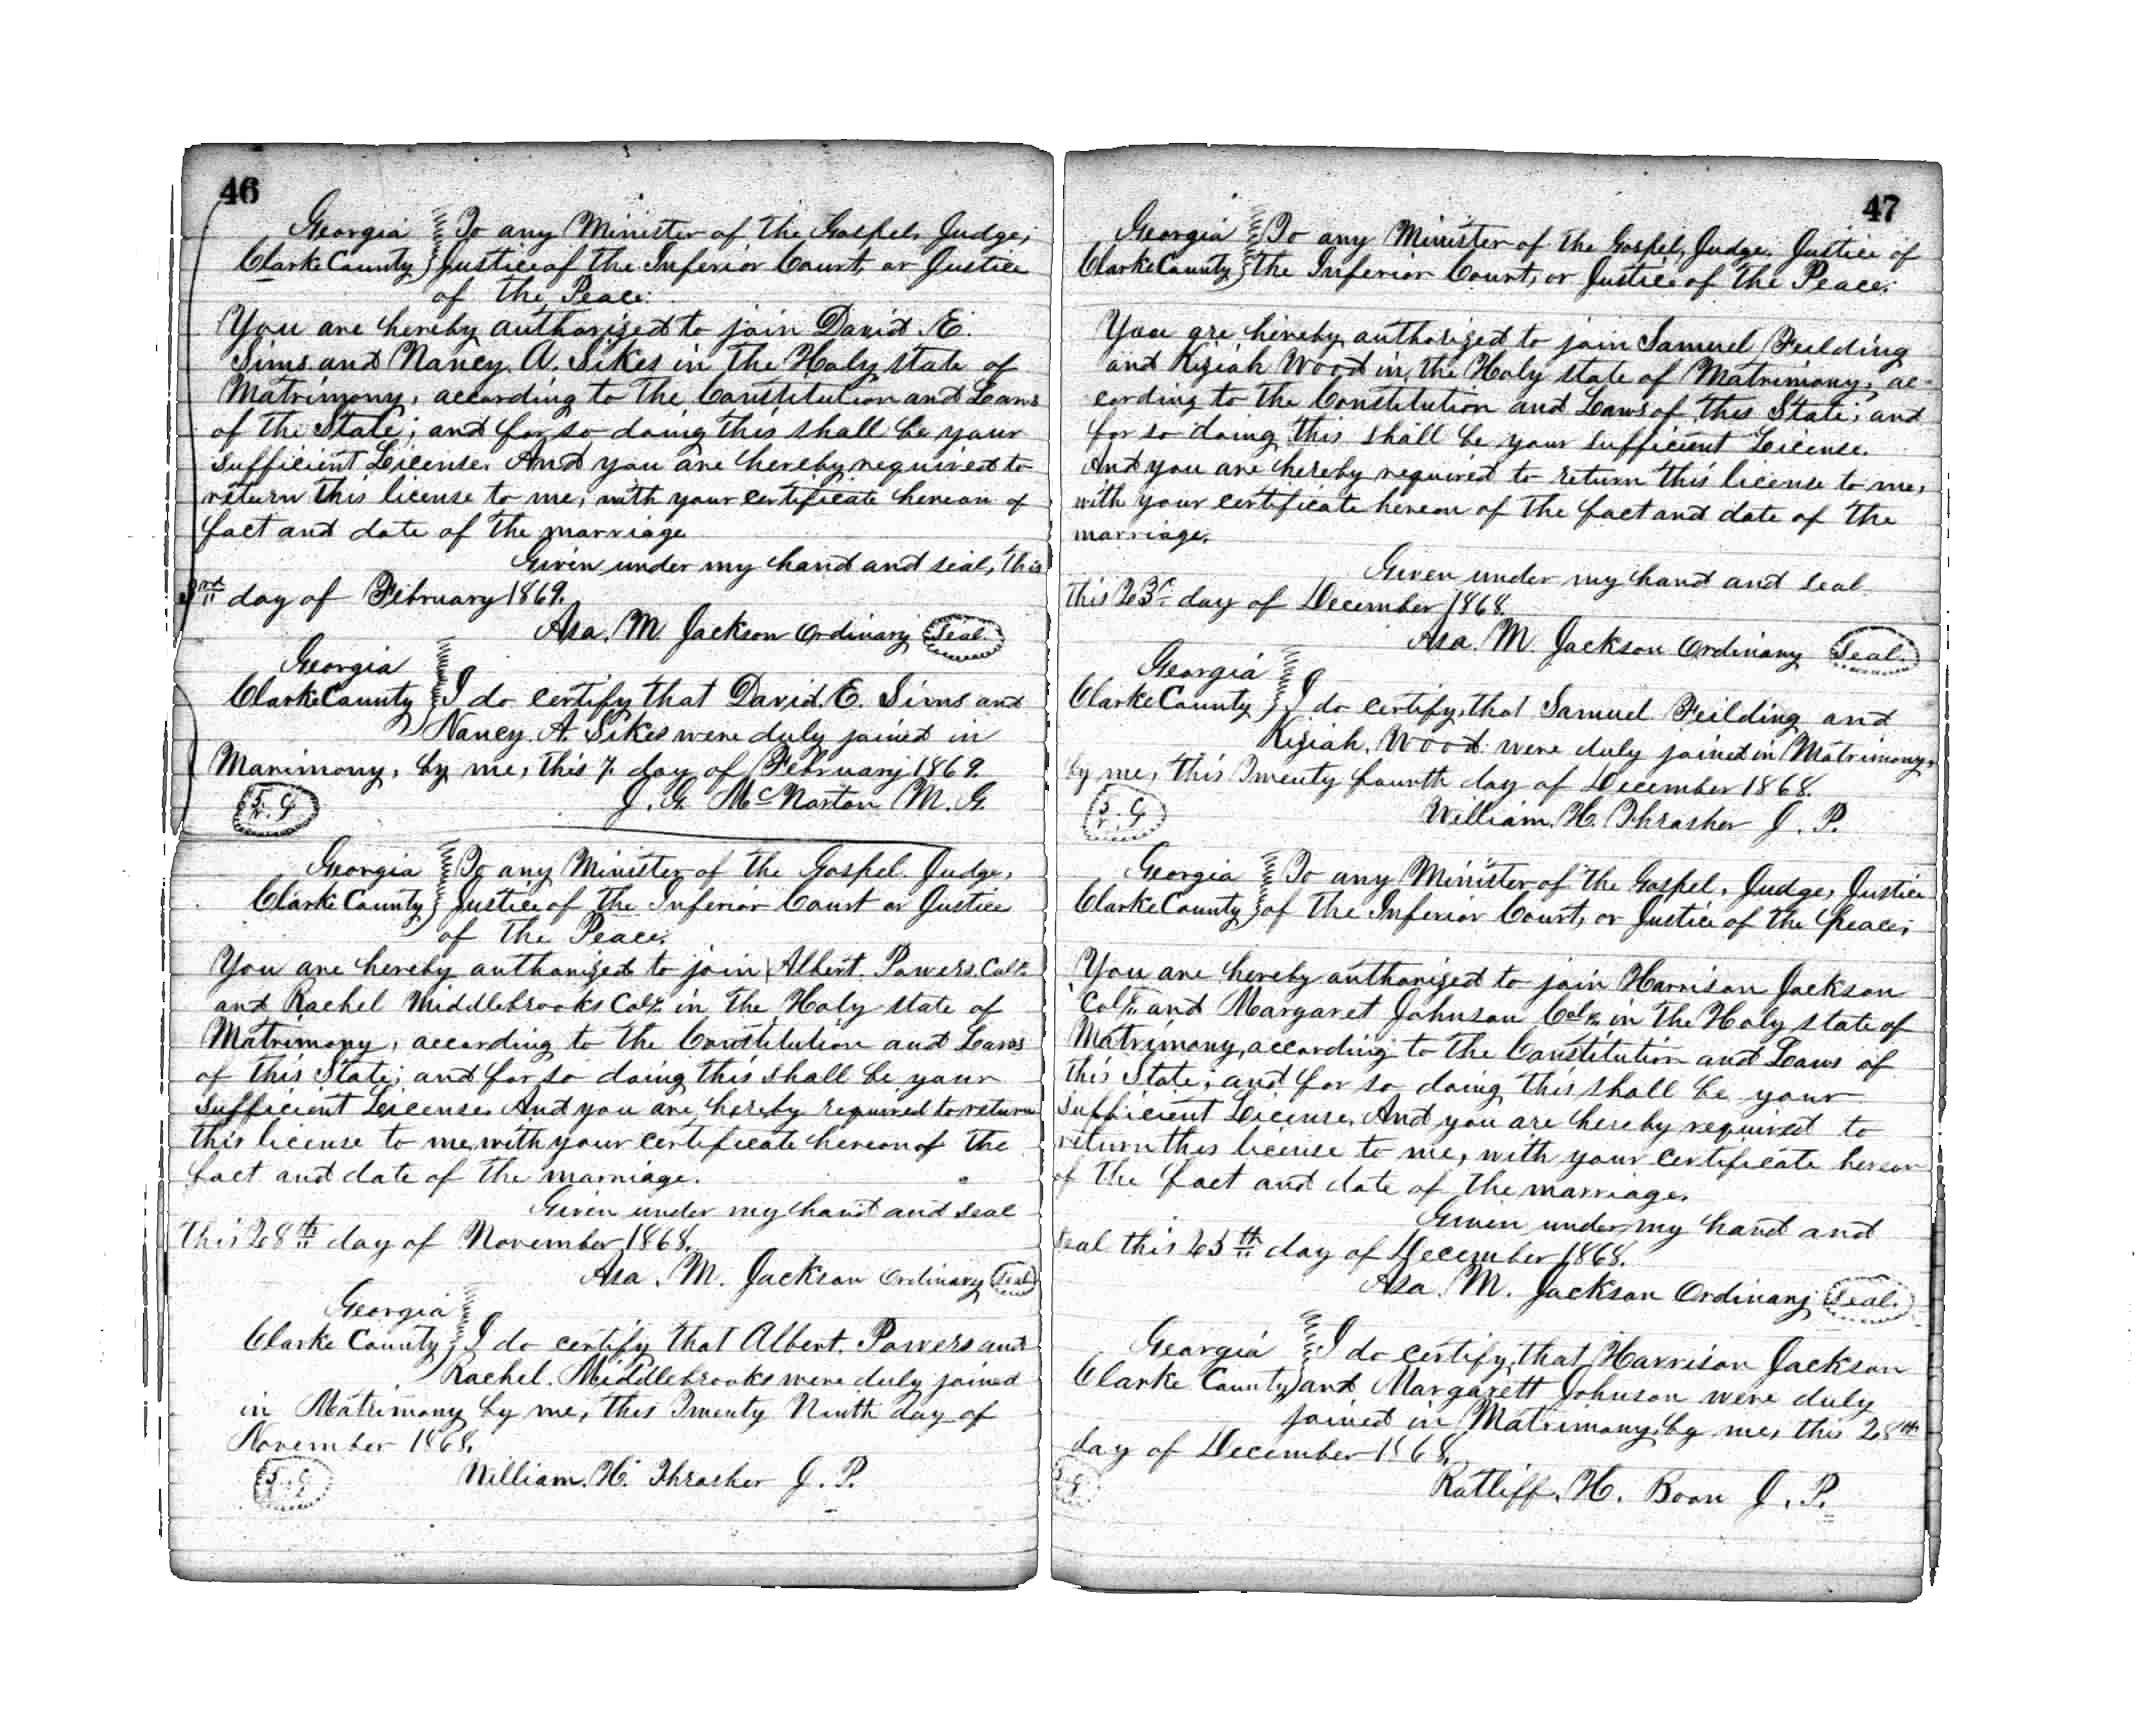 46
Georgia } To any Minister of the Gospel, Judge,
Clarke County } Justice of the Inferior Court, or Justice
of the Peace.
You are hereby authorized to join David E.
Sims and Nancy A. Sikes in the Holy state of
Matrimony, according to the Constitution and Laws
of the State; and for so doing this shall be your
sufficient License. And you are hereby required to
return this license to me, with your certificate hereon of
fact and date of the marriage
Given under my hand and seal, this
3rd day of February 1869.
Asa. M. Jackson Ordinary Seal
Georgia
Clarke County } I do certify that David. E. Sims and
Nancy. A. Sikes were duly joined in
Marimony, by me, this 7. day of February 1869.
J. G. McNorton M. G.
Georgia } To any Minister of the Gospel. Judge,
Clarke County } Justice of the Inferior Court or Justice
of the Peace.
You are hereby authorized to join Albert. Powers. Cold.
and Rachel Middlebrooks Cold. in the Holy state of
Matrimony, according to the Constitution and Laws
of this State; and for so doing this shall be your
sufficient License. And you are hereby required to return
this license to me, with your certificate hereon of the
fact and date of the marriage.
Given under my hand and seal
this 28th day of November 1868.
Asa. M. Jackson Ordinary Seal
Georgia
Clarke County } I do certify that Albert. Powers and
Rachel. Middlebrooks were duly joined
in Matrimony by me, this Twenty Ninth day of
November 1868.
William. H. Thrasher J. P.
47
Georgia } To any Minister of the Gospel, Judge, Justice of
Clarke County } the Inferior Court, or Justice of the Peace.
You are hereby authorized to join Samuel Feilding
and Kiziah Wood in the Holy state of Matrimony, ac-
cording to the Constitution and Laws of this State; and
for so doing this shall be your sufficient License.
And you are hereby required to return this license to me,
with your certificate hereon of the fact and date of the
marriage.
Given under my hand and seal
this 23d day of December 1868.
Asa. M. Jackson Ordinary Seal.
Georgia
Clarke County } I do certify, that Samuel Feilding and
Kiziah. Wood were duly joined in Matrimony,
by me, this Twenty fourth day of December 1868.
William. H. Thrasher J. P.
Georgia } To any Minister of the Gospel, Judge, Justice
Clarke County } of the Inferior Court, or Justice of the Peace;
You are hereby authorized to join Harrison Jackson
Cold. and Margaret Johnson Cold. in the Holy state of
Matrimony, according to the Constitution and Laws of
this State; and for so doing this shall be your
sufficient License. And you are hereby required to
return this license to me, with your certificate hereon
of the fact and date of the marriage.
Given under my hand and
seal this 25th day of December 1868.
Asa. M. Jackson Ordinary Seal.
Georgia } I do certify, that Harrison Jackson
Clarke County } and Margarett Johnson were duly
joined in Matrimony, by me, this 28th
day of December 1868.
Ratliff. H. Boon J. P.